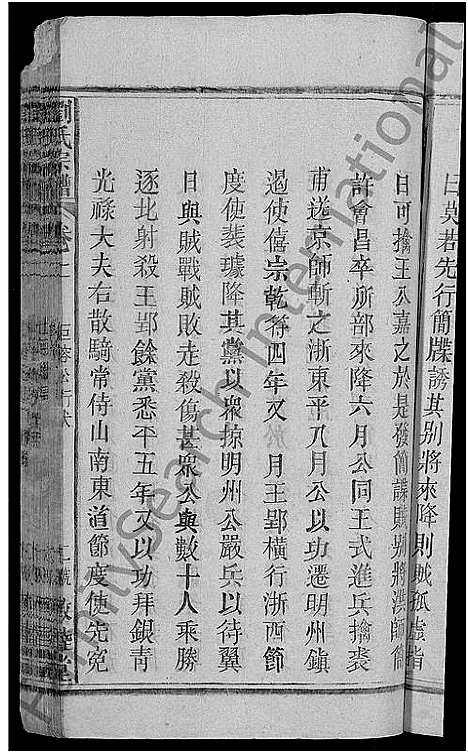 曰莫若先行簡牒誘其別將來降則賊孤虛指
日可擒王公嘉之於是發簡諜賊別將洪師簡
許會昌卒所部來降六月公同王式進兵擒裘
甫送京師斬之浙東平八月公以功遷明州鎮
遏使僖宗乾符四年又 月王郢橫行浙西節
度使裴璩降其黨以衆掠明州公嚴兵以待翼
日與賊戰賊敗走殺傷甚衆公與數十人乘勝
逐北射殺王郢餘黨悉平五年又以功拜銀青
光祿大夫右散騎常侍山南東道節度使先宛
劉氏宗譜 卷
FamilySearch International